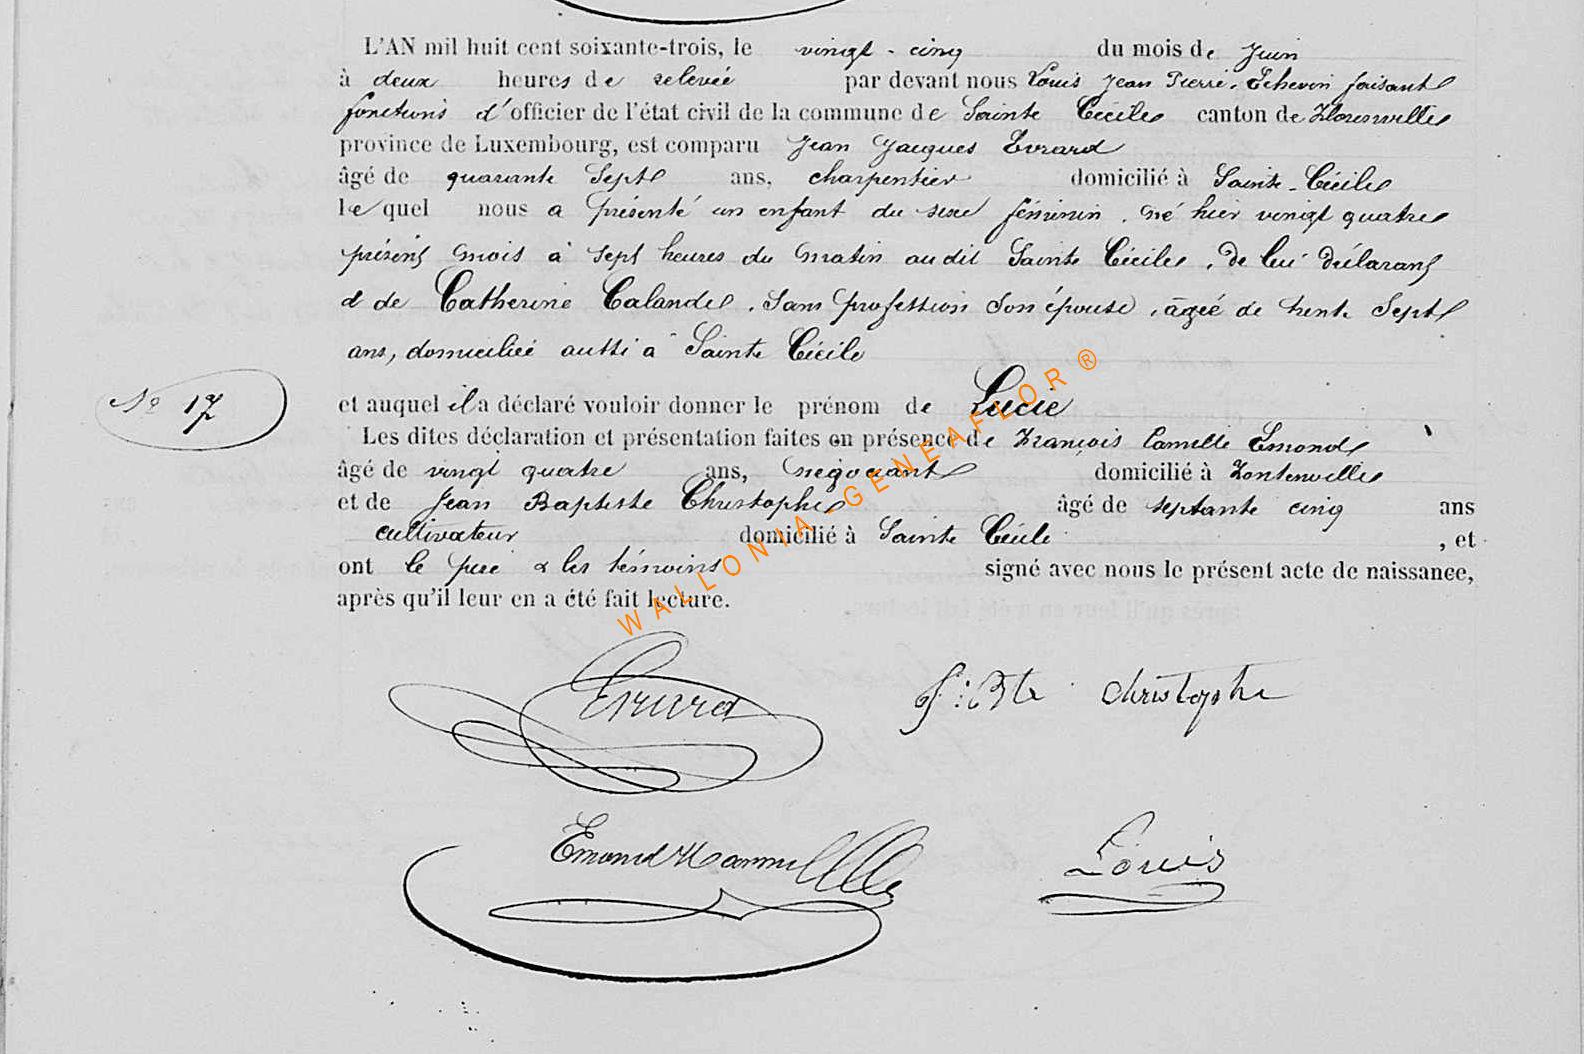 L'AN mil huit cent soixante-trois, le vingt-cinq du mois de Juin
à deux heures de relevée par devant nous Louis Jean Pierre, Echevin faisant
fonctions d'officier de l'état civil de la commune de Sainte Cécile canton de Florenville
province de Luxembourg, est comparu Jean Jacques Evrard
âgé de quarante Sept ans, charpentier domicilié à Sainte-Cécile
lequel nous a présenté un enfant du sexe féminin, né hier vingt quatre
présent mois à sept heures du matin audit Sainte Cécile, de lui déclarant
& de Catherine Calande, Sans profession Son épouse, agée de trente Sept
ans, domiciliée aussi à Sainte Cécile
No 17
et auquel il a déclaré vouloir donner le prénom de Lucie
Les dites déclaration et présentation faites en présence de François Camille Emond
âgé de vingt quatre ans, négociant domicilié à Fontenoille
et de Jean Baptiste Christophe âgé de septante cinq ans
cultivateur domicilié à Sainte Cécile, et
ont le père & les témoins signé avec nous le présent acte de naissance,
après qu'il leur en a été fait lecture.
WALLONIA-GENEAFLOR ®
Evrard J: Bte Christophe
Emond Camille Louis